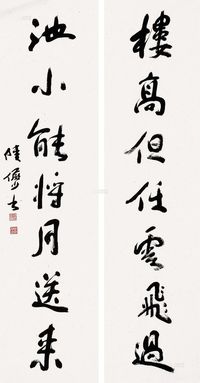 樓高但任雲飛過
池小能將月送來
陸儼少